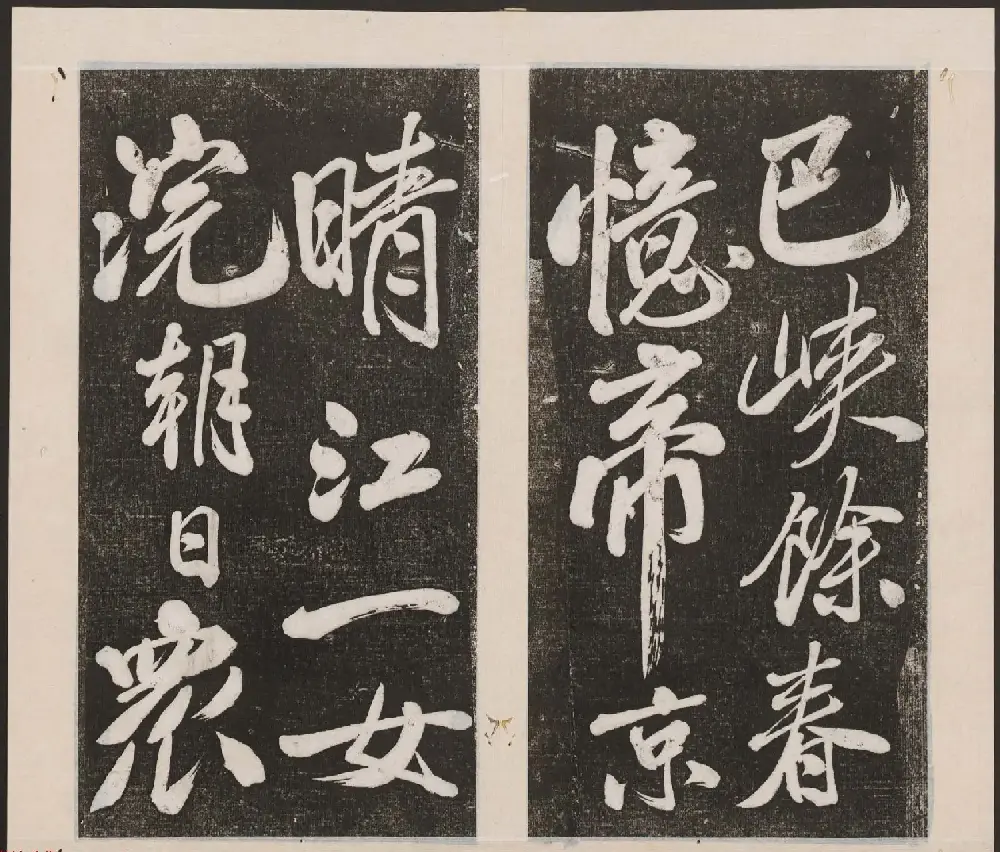 巴峽餘春
憶帝京
晴江一女
浣朝日衆